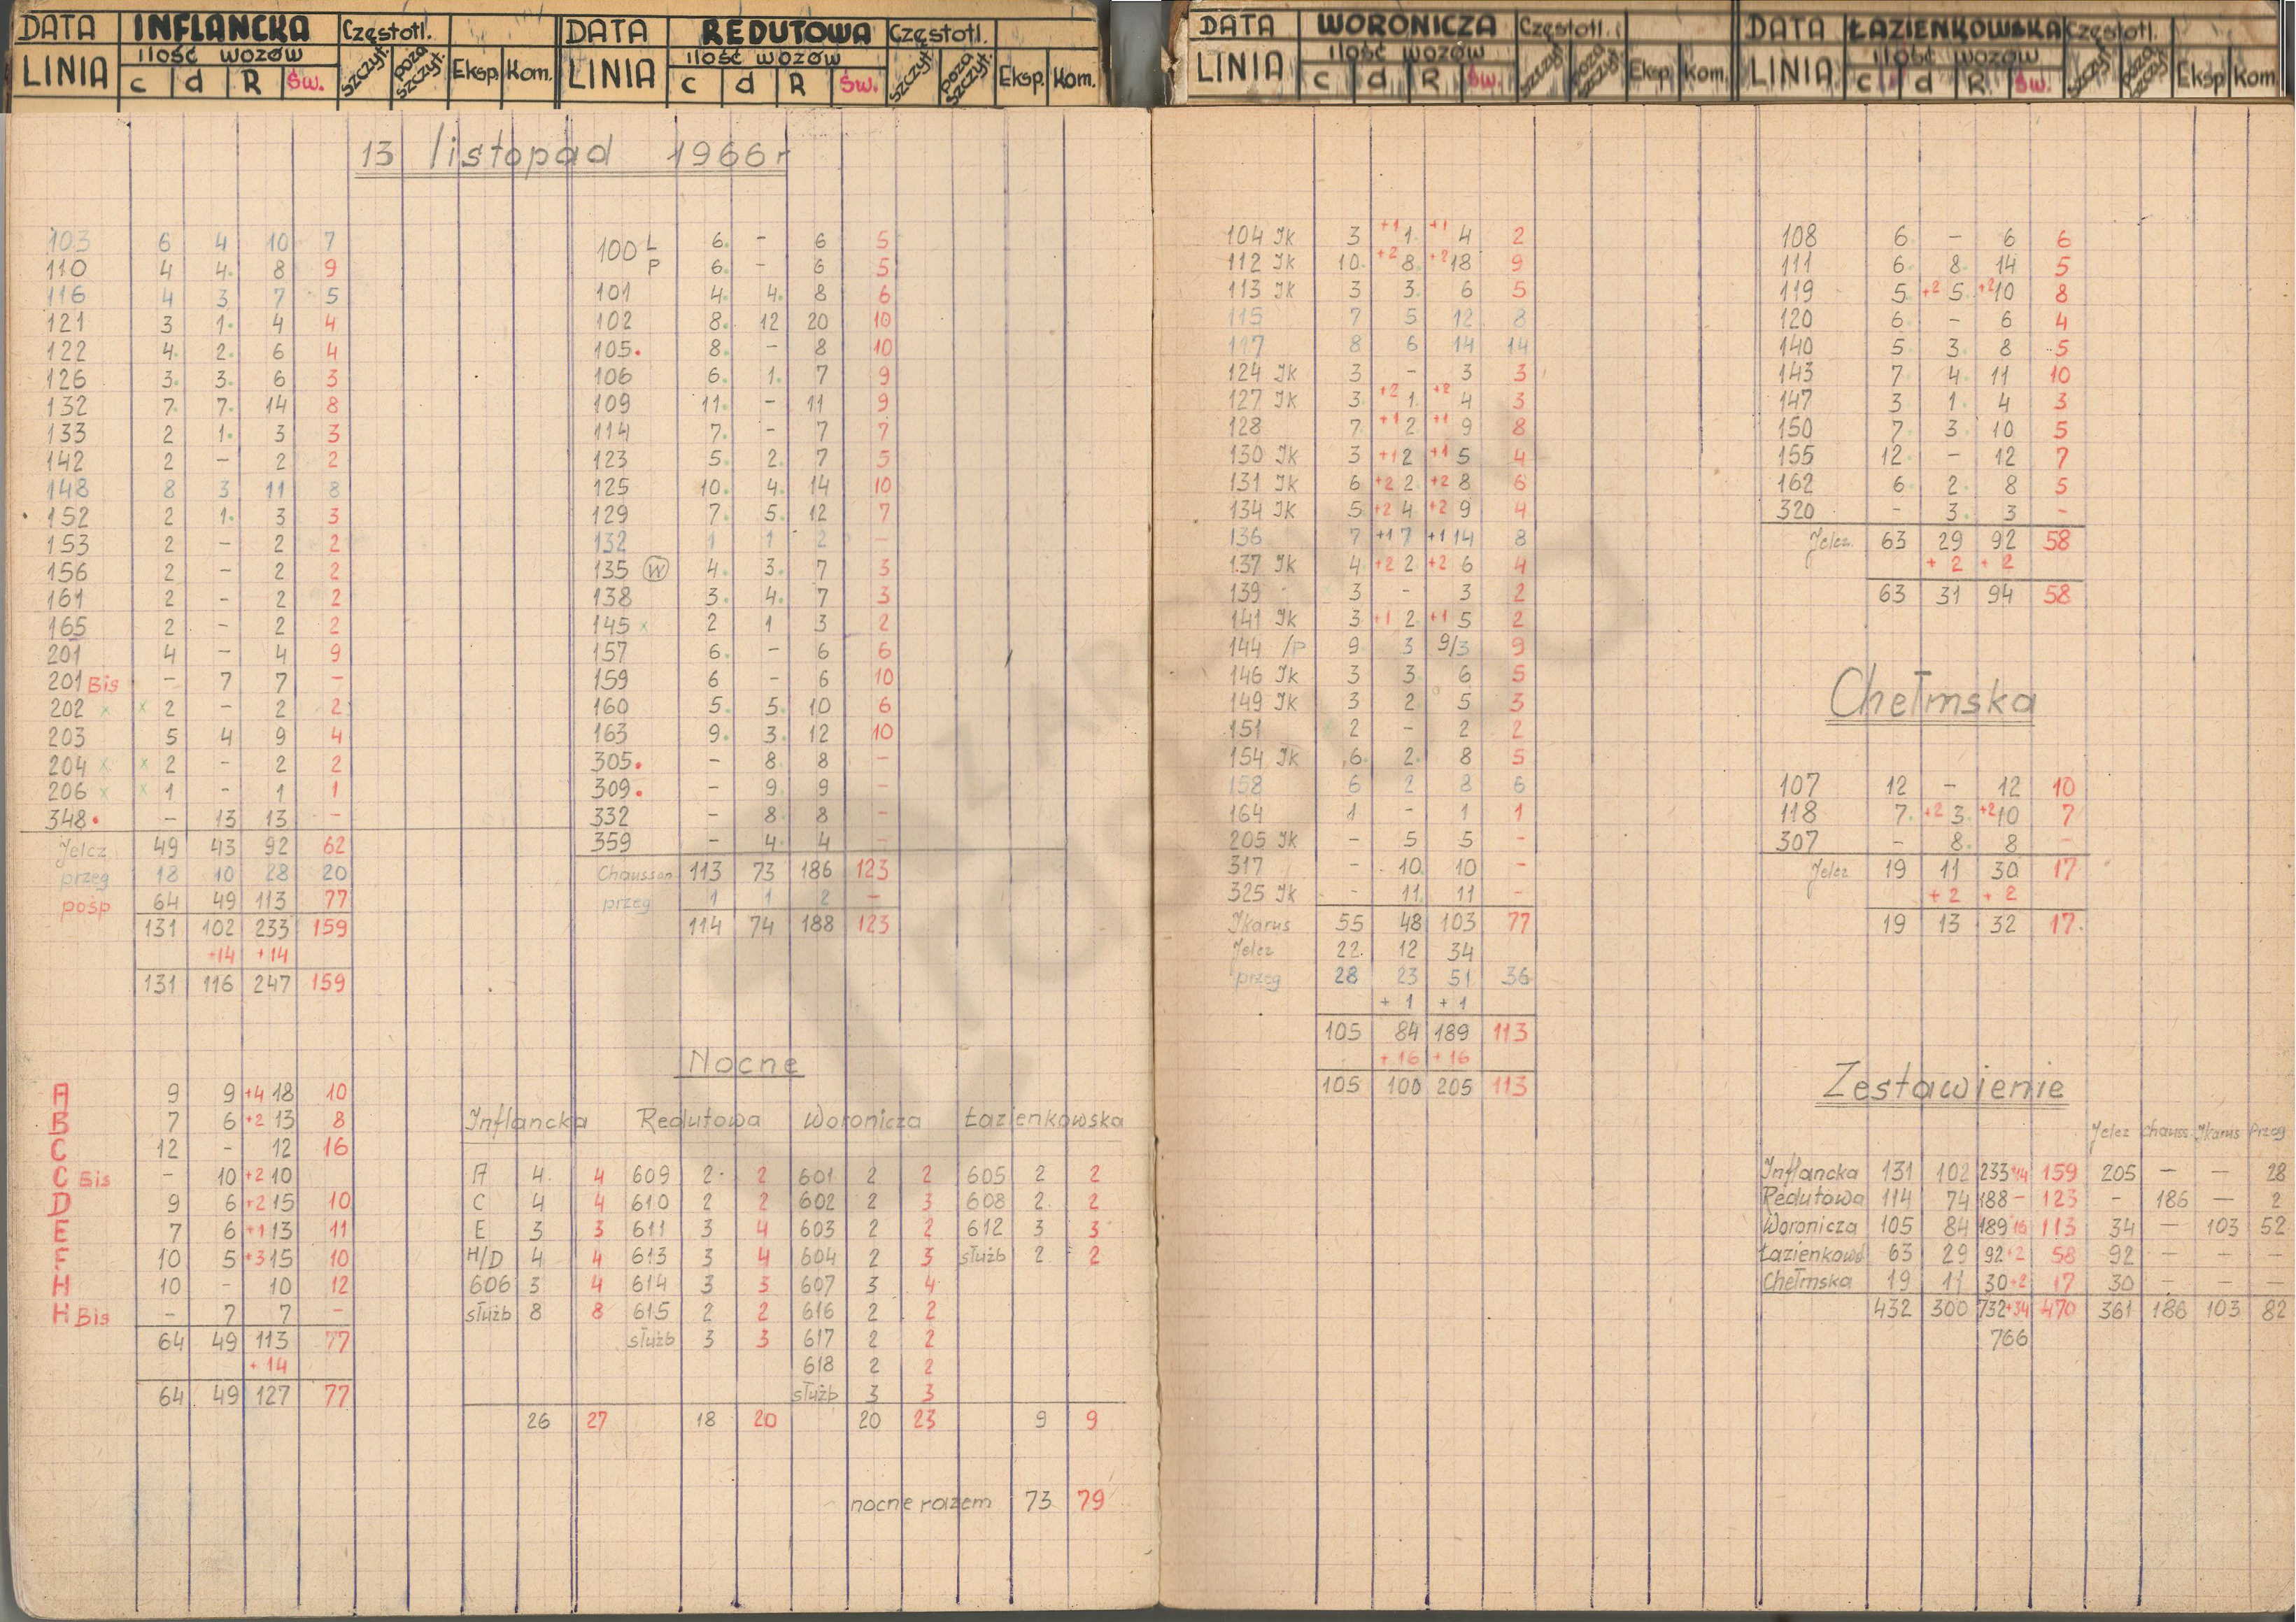 DATA INFLANCKA Częstotl.
LINIA ilość wozów c d R Św. szczyt. poza szczyt. Eksp. Kom.
13 listopad 1966r
103 6 4 10 7
110 4 4. 8 9
116 4 3 7 5
121 3 1. 4 4
122 4. 2. 6 4
126 3. 3. 6 3
132 7. 7. 14 8
133 2 1. 3 3
142 2 - 2 2
148 8 3 11 8
152 2 1. 3 3
153 2 - 2 2
156 2 - 2 2
161 2 - 2 2
165 2 - 2 2
201 4 - 4 9
201 Bis - 7 7 -
202 x x 2 - 2 2
203 5 4 9 4
204 x x 2 - 2 2
206 x x 1 - 1 1
348. - 13 13 -
Jelcz 49 43 92 62
przeg 18 10 28 20
pośp 64 49 113 77
131 102 233 159
+14 +14
131 116 247 159
A 9 9 +4 18 10
B 7 6 +2 13 8
C 12 - 12 16
C Bis - 10 +2 10
D 9 6 +2 15 10
E 7 6 +1 13 11
F 10 5 +3 15 10
H 10 - 10 12
H Bis - 7 7 -
64 49 113 77
+ 14
64 49 127 77
DATA REDUTOWA Częstotl.
LINIA ilość wozów c d R Św. szczyt. poza szczyt. Eksp. Kom.
100 L 6. - 6 5
P 6. - 6 5
101 4. 4. 8 6
102 8. 12 20 10
105. 8. - 8 10
106 6. 1. 7 9
109 11. - 11 9
114 7. - 7 7
123 5. 2. 7 5
125 10. 4. 14 10
129 7. 5. 12 7
132 1 1 2 -
135 W 4. 3. 7 3
138 3. 4. 7 3
145 x 2 1 3 2
157 6. - 6 6
159 6 - 6 10
160 5. 5. 10 6
163 9. 3. 12 10
305. - 8. 8 -
309. - 9. 9 -
332 - 8. 8 -
359 - 4. 4 -
Chausson 113 73 186 123
przeg 1 1 2 -
114 74 188 123
Nocne
Inflancka Redutowa Woronicza Łazienkowska
A 4. 4 609 2. 2 601 2 2 605 2 2
C 4 4 610 2 2 602 2 3 608 2. 2
E 3 3 611 3 4 603 2 2 612 3 3
H/D 4 4 613 3 4 604 2 3 służb 2 2
606 3 4 614 3 3 607 3 4
służb 8 8 615 2 2 616 2 2
służb 3 3 617 2 2
618 2 2
służb 3 3
26 27 18 20 20 23 9 9
nocne razem 73 79
DATA WORONICZA Częstotl.
LINIA ilość wozów c d R Św. szczyt. poza szczyt. Eksp Kom.
104 Jk 3 +1 1. +1 4 2
112 Jk 10. +2 8. +2 18 9
113 Jk 3 3. 6 5
115 7 5 12 8
117 8 6 14 14
124 Jk 3 - 3 3
127 Jk 3. +2 1. +2 4 3
128 7 +1 2 +1 9 8
130 Jk 3 +1 2 +1 5 4
131 Jk 6 +2 2. +2 8 6
134 Jk 5 +2 4 +2 9 4
136 7 +1 7 +1 14 8
137 Jk 4 +2 2. +2 6 4
139 3 - 3 2
141 Jk 3. +1 2. +1 5 2
144 /P 9. 3 9/3 9
146 Jk 3 3. 6 5
149 Jk 3 2 5 3
151 2 - 2 2
154 Jk 6. 2. 8 5
158 6 2 8 6
164 1 - 1 1
205 Jk - 5 5 -
317 - 10. 10 -
325 Jk - 11. 11 -
Jkarus 55 48 103 77
Jelcz 22. 12 34
przeg 28 23 51 36
+ 1 + 1
105 84 189 113
+ 16 + 16
105 100 205 113
DATA ŁAZIENKOWSKA Częstotl.
LINIA ilość wozów c d R Św. szczyt. poza szczyt. Eksp Kom.
108 6. - 6 6
111 6. 8. 14 5
119 5. +2 5. +2 10 8
120 6. - 6 4
140 5. 3. 8 5
143 7. 4. 11 10
147 3 1. 4 3
150 7. 3. 10 5
155 12. - 12 7
162 6. 2. 8 5
320 - 3. 3 -
Jelcz 63 29 92 58
+ 2 + 2
63 31 94 58
Chełmska
107 12 - 12 10
118 7. +2 3. +2 10 7
307 - 8. 8 -
Jelcz 19 11 30 17
+ 2 + 2
19 13 32 17.
Zestawienie
Jelcz chauss Jkarus Przeg
Inflancka 131 102 233 +14 159 205 - - 28
Redutowa 114 74 188 - 123 - 186 - 2
Woronicza 105 84 189 16 113 34 - 103 52
Łazienkows 63 29 92 +2 58 92 - - -
Chełmska 19 11 30 +2 17 30 - - -
432 300 732 +34 470 361 186 103 82
766